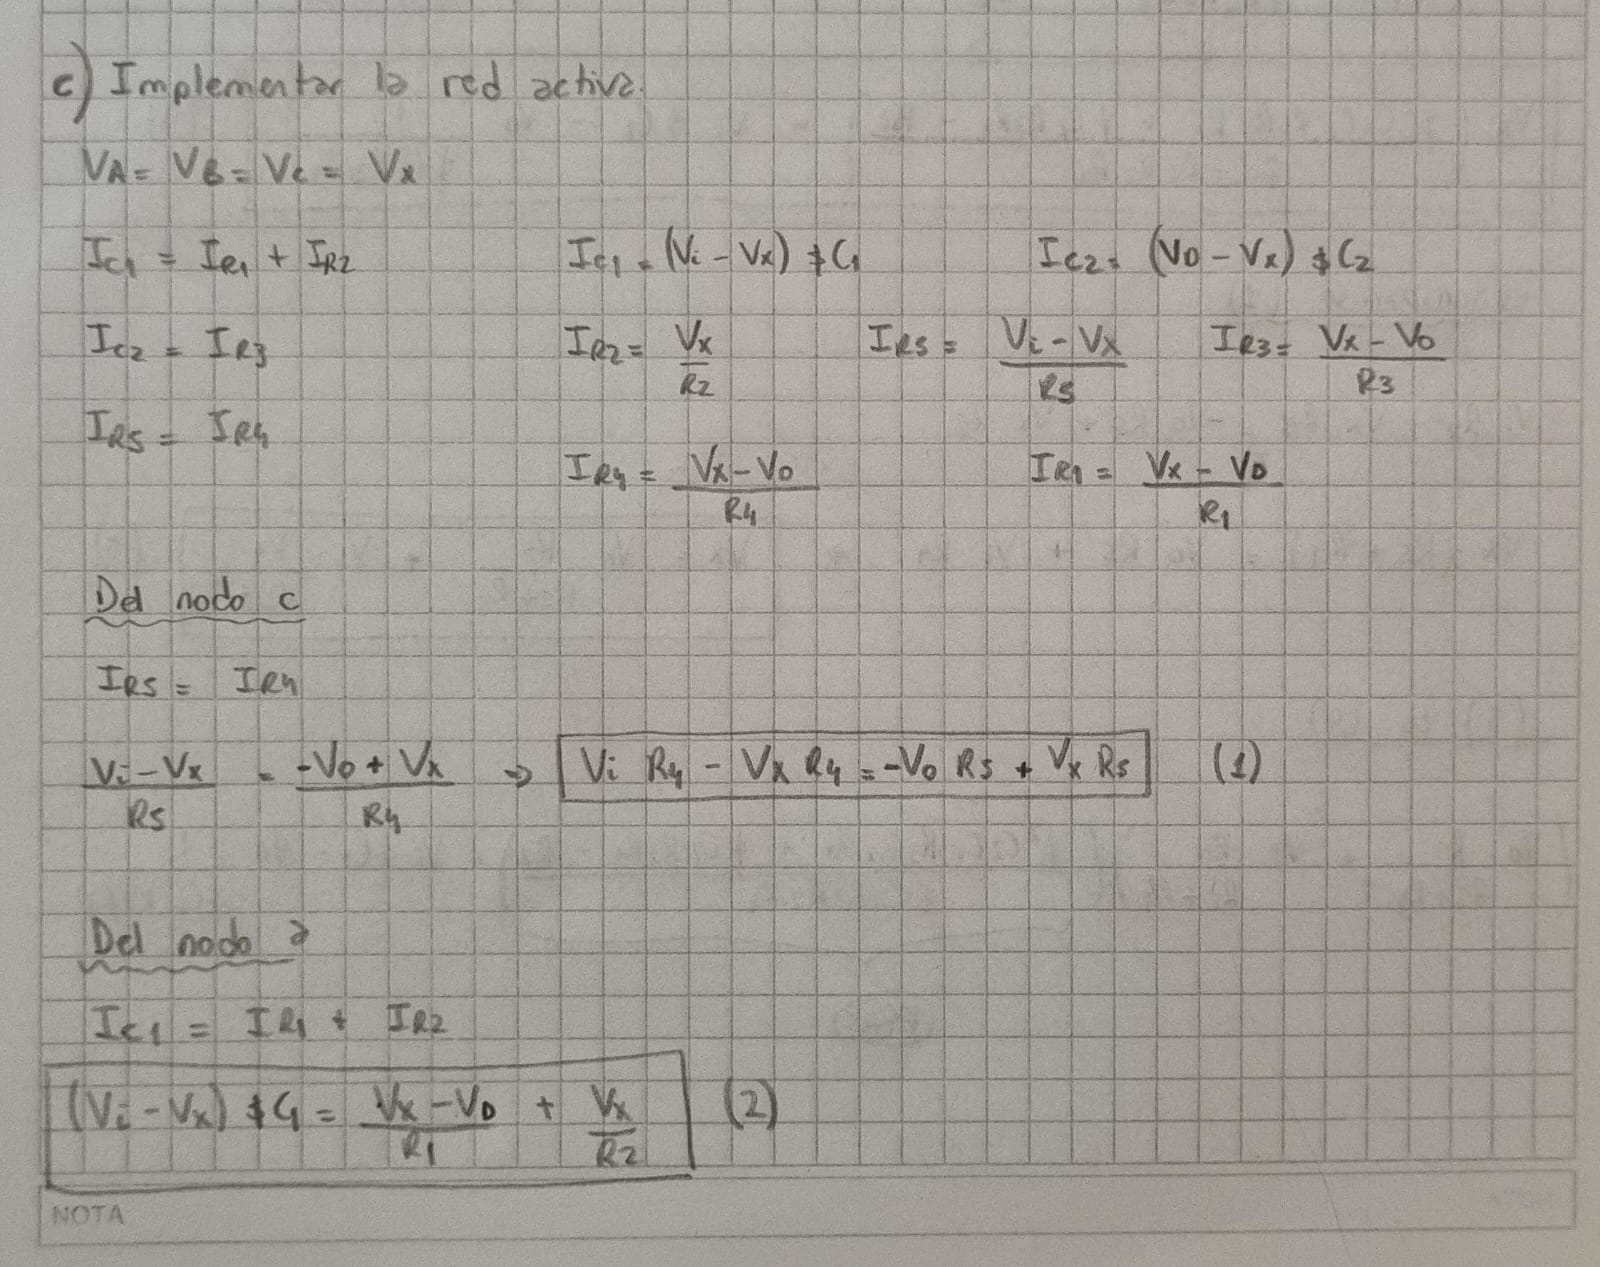 c) Implementar la red activa.
VA = VB = Vc = Vx
IC1 = IR1 + IR2 IC1 = (Vi - Vx) $C1 IC2 = (Vo - Vx) $C2
IC2 = IR3 IR2 = Vx/R2 IR5 = (Vi - Vx)/R5 IR3 = (Vx - Vo)/R3
IR5 = IR4
IR4 = (Vx - Vo)/R4 IR1 = (Vx - Vo)/R1
Del nodo c
IR5 = IR4
(Vi - Vx)/R5 = (-Vo + Vx)/R4 => Vi R4 - Vx R4 = -Vo R5 + Vx R5 (1)
Del nodo a
IC1 = IR1 + IR2
(Vi - Vx) $C1 = (Vx - Vo)/R1 + Vx/R2 (2)
NOTA